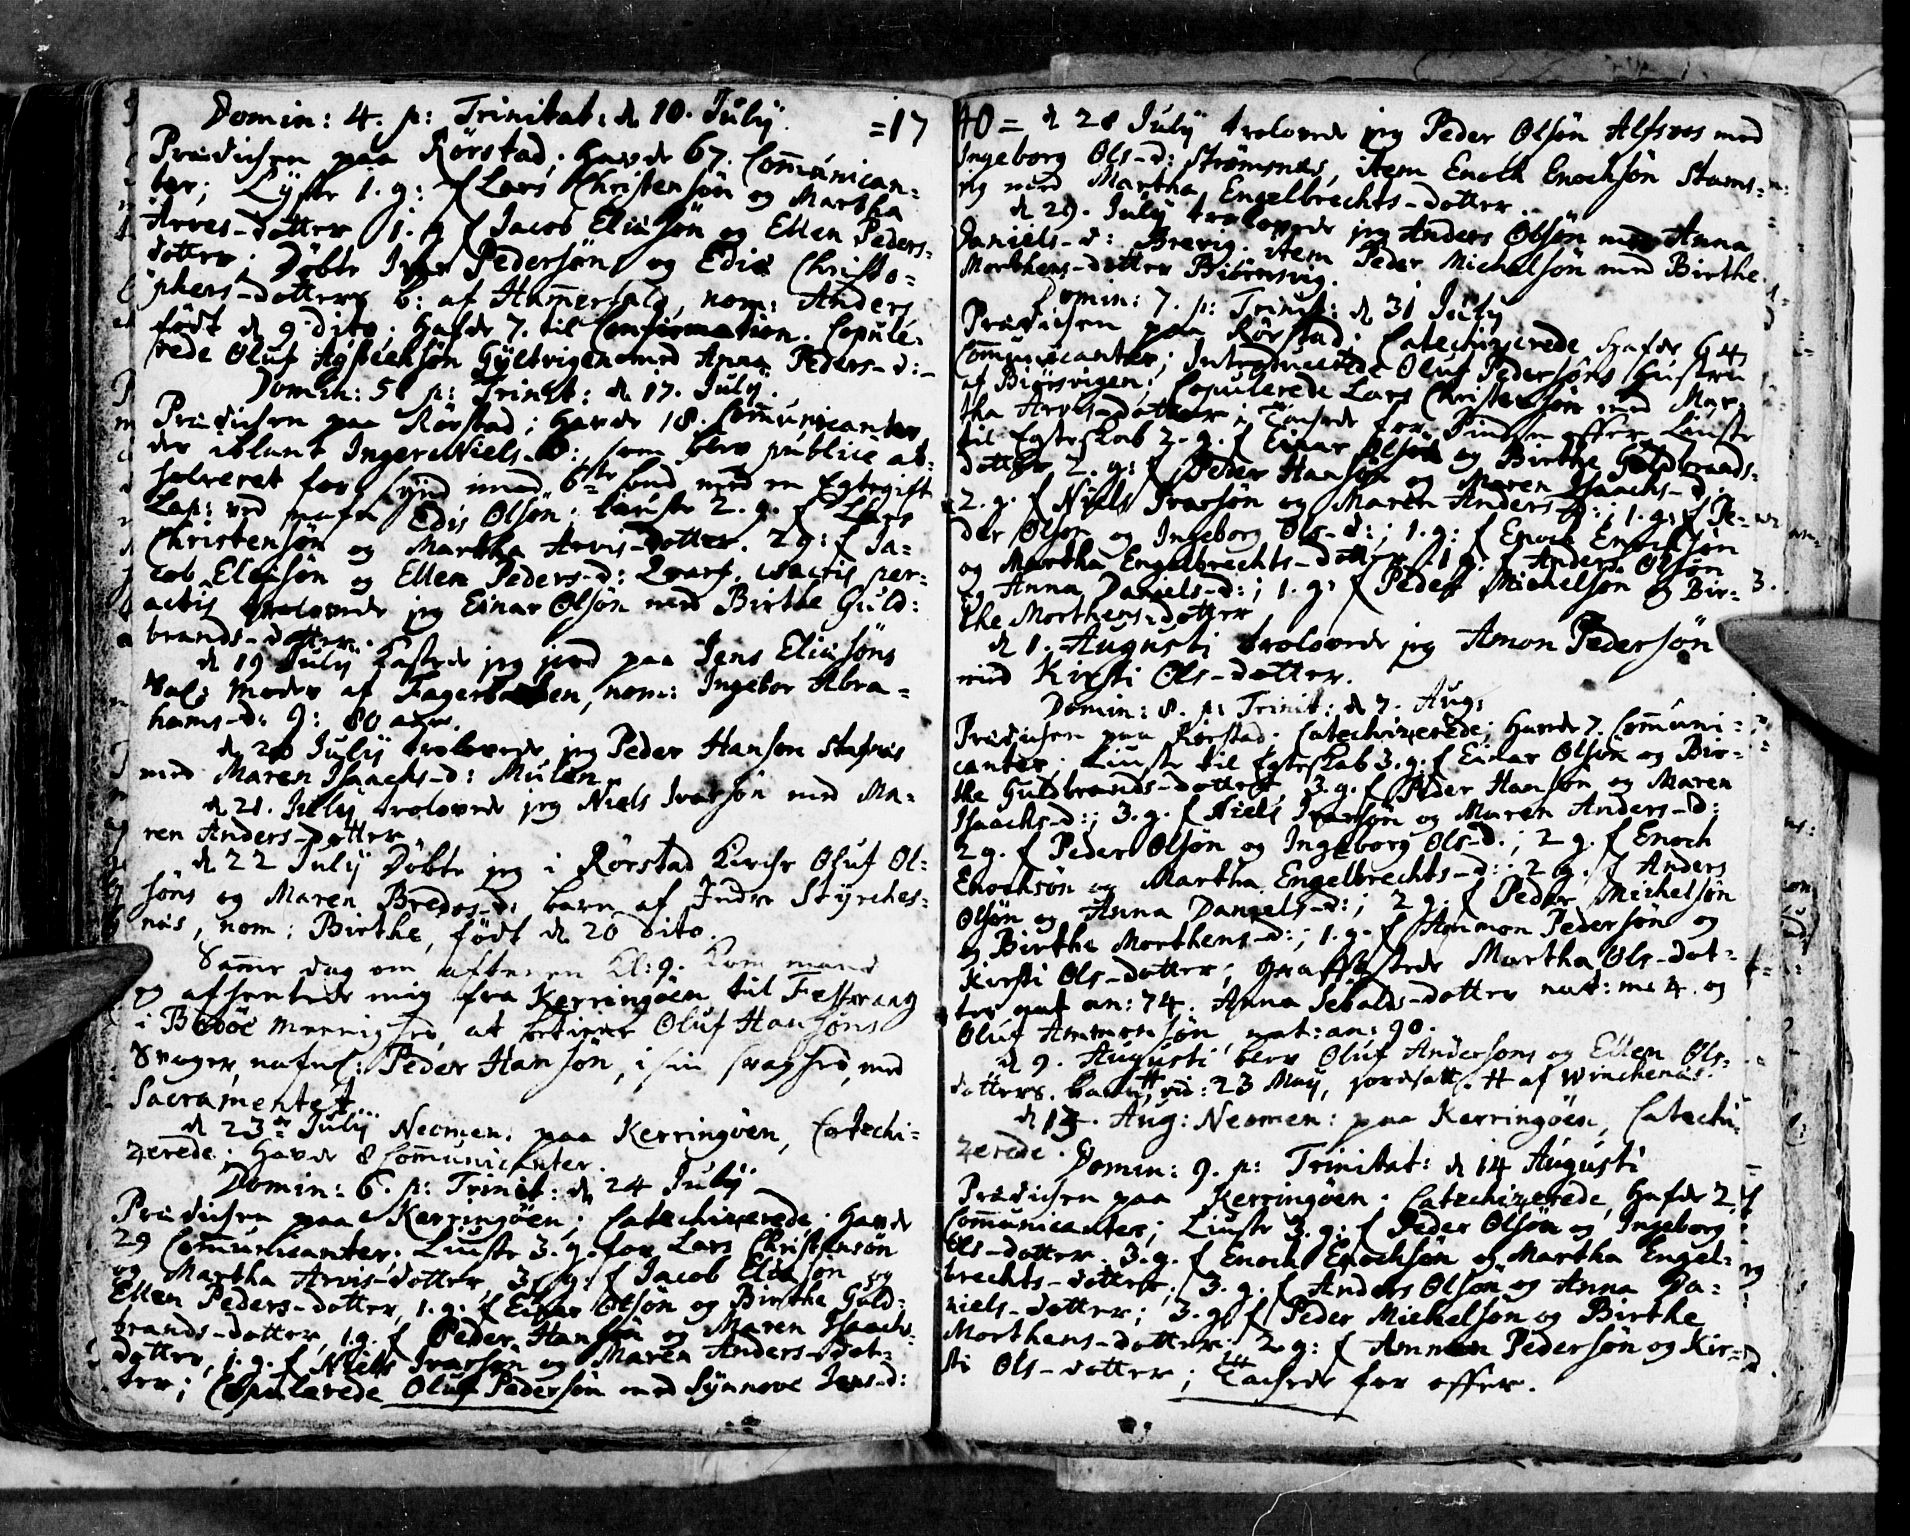 Domin: 4. p: Trinitat: d 10. Julÿ. =17
Prædichen paa Rörstad; havde 67. Communican=
ter; Lÿste 1. g: f Lars Christensön og Martha
Arves-dotter 1. g f Jacob Eliæsön og Ellen Peders-
dotter. Döbte Iver Pedersöns og Edis Christo=
phers-dotters b: af Hamersald, nom: Anders
födt d 9 dito; hafde 7. til Confirmation. Copule=
rede Oluf Gÿltvigen med Anna Peders-d:
Domin: 5 p: Trinit: d 17. Julÿ.
Prædichen paa Rörstad; havde 18. Communicanter
der iblant Inger Niels-D:, som blev publice ab=
solveret for synd imod 6te bud med en Egtegift
Lap: ved nafn Edis Olsön. Liuste 2. g. f Lars
Christensön og Martha Arvis-dotter. 2 g: f Ja=
cob Eliæsön og Ellen Peders-d: sacris per=
actis trolovede jeg Einar Olsön med Birthe Guld=
brands-dotter.
d 19 Julÿ kastede jeg jord paa Jens Eliæsöns
Sal: moder af Fagerbachen, nom: Ingebor Abra=
hams-d: g: 80 aar.
d 20 Julÿ trolovede jeg Peder Hansön Stafnæs
med Maren Isaachs-d: Mulen.
d 21. Julÿ trolovede jeg Niels Ivarsön med Ma=
ren Anders-dotter.
d 22 Julÿ Döbte jeg i Rörstad Kirche Oluf Ol=
söns og Maren Bredes-d: barn af Indre Stÿrches=
næs, nom: Birthe, födt d 20 dito.
Samme dag om aftenen Kl: 9. kom mand
og afhentede mig fra Kerringöen til Festvaag
i Bodöe menighed, at betiene Oluf Hansöns
Svoger, nafnl: Peder Hansön, i sin svaghed, med
Sacramentet.
d 23de Julÿ Neomen: paa Kerringöen, Catechi=
zerede. Havde 8 Communicanter.
Domin: 6. p: Trinit: d 24 Julÿ
Prædichen paa Kerringöen; Catechizerede. Havde
29 Communicanter; Liuste 3. g. for Lars Christensön
og Martha Arvis-dotter, 3. g: f Jacob Eliæsön og
Ellen Peders-dotter, 1. g. f Einar Olsön og Birthe Guld=
brands-dotter, 1. g. f Peder Hansön og Maren Isaachs-
dotter, 1. g. f Niels Ivarsön og Maren Anders-dot=
ter; Copulerede Oluf Pedersön med Sÿnnove Jens-d:
40= d 28 Julÿ trolovede jeg Peder Olsön Alfsnes med
Ingeborg Ols-d: Strömsnæs, item Enoch Enochsön Stams=
jeg med Martha Engelbrechts-dotter.
d 29. Julÿ trolovede jeg Anders Olsön med Anna
Daniels-d: Brevig. item Peder Michelsön med Birthe
Morthens-dotter Biörnsvig.
Domin: 7. p: Trinit: d 31 Julÿ
Prædichen paa Rörstad; Catechizerede Hafde 64
Communicanter; Introducerede Oluf Pedersöns Hustru
af Biörsvigen; Copulerede Lars Christensön med Mar=
tha Arves-dotter; Tachede for Pindse offer. Liuste
til Egteskab 2. g. f Einar Olsön og Birthe Guldbrands-
dotter 2. g: f Peder Hansön og Maren Isaachs-d:
2. g. f Niels Ivarsön og Maren Anders-D:; 1. g: f Pe=
der Olsön og Ingeborg Ols-d:; 1. g: f Enoch Enochsön
og Martha Engelbrechts-dotter 1 g: f Anders Olsön
og Anna Daniels-d:; 1. g: f Peder Michelsön og Bir=
the Morthens-dotter
d 1. Augusti trolovede jeg Amon Pedersön
med Kirsti Ols-dotter.
Domin: 8. p: Trinit: d 7. Aug:
Prædichen paa Rörstad. Catechizerede; Havde 7. Communi=
canter. Liuste til Egteskab 3. g. f Einar Olsön og Bir=
the Guldbrands-dotter, 3. g. f Peder Hansön og Maren
Isaachs-d:; 3. g. f Niels Ivarsön og Maren Anders-D:
2 g. f Peder Olsön og Ingeborg Ols-D.; 2 g. f Enoch
Enochsön og Martha Engelbrechts-d:; 2 g. f Anders
Olsön og Anna Daniels-d:; 2 g. f Peder Michelsön
og Birthe Morthens-d:; 1. g. f Ammon Pedersön og
Kirsti Ols-dotter; Graffæstede Martha Ols-dot=
ter nat an: 74. Anna Sebalds-dotter nat: me 4. og
Oluf Ammonsön, nat: an: 90.
d 9. Augusti blev Oluf Andersöns og Ellen Ols-
dotters. barn, vid: 23 May, jordsatt. af Winchenæs.
d 13. Aug: Neomen: paa Kerringöen, Catechi=
zerede. Domin: 9. p: Trinitat: d 14 Augusti
Prædichen paa Kerringöen. Catechizerede, hafde 2
Communicanter; Liuste 3. g: f Peder Olsön og Ingeborg
Ols-dotter. 3. g. f Enoch Enochsön og Martha Engel=
brechts-dotter, 3. g. f Anders Olsön og Anna Da=
niels-dotter; 3. g. f Peder Michelsön og Birthe
Morthens-dotter; 2. g: f Ammon Pedersön og Kir=
sti Ols-dotter; Tachede for offer.